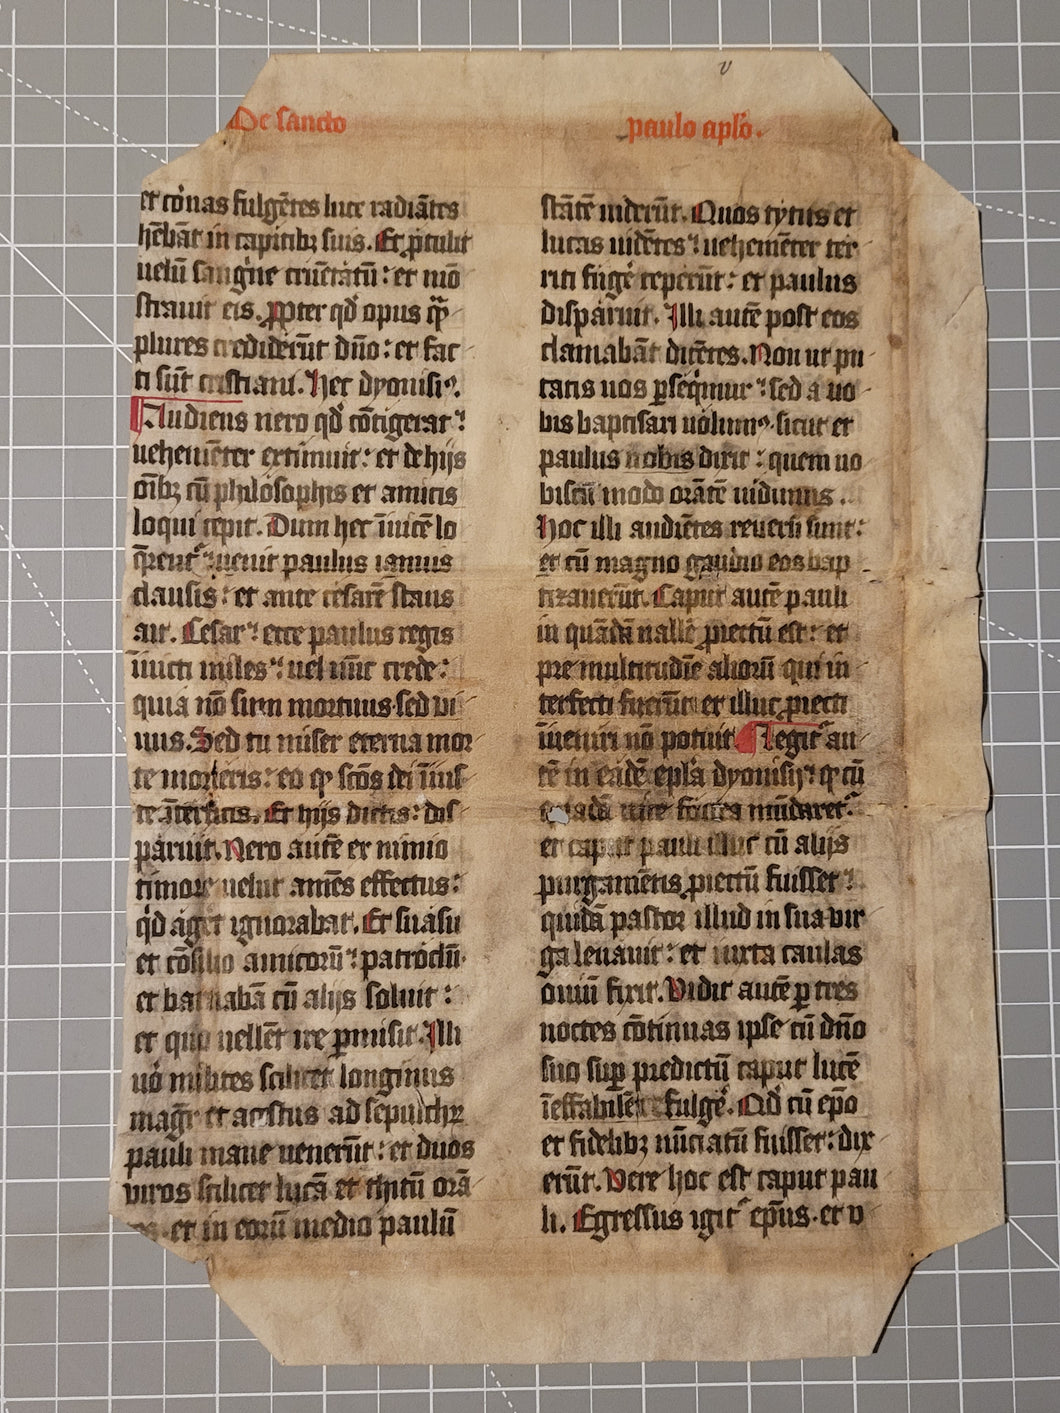 v
De sancto
paulo aplo.
et coronas fulgētes luce radiātes
hēbāt in capitibꝫ suis. Et ꝓtulit
uelū sanguīe cruētatū : et mō
strauit eis. ꝓpter qd̄ opus ꝙ
plures crediderūt dn̄o : et fac
ti sūt cristiani. Hec dyonisiꝰ.
Audiens nero qd̄ cōtigerat :
uehemēter extimuit : et de hijs
oīibꝫ cū philosophis et amicis
loqui cepit. Dum hec īuicē lo
q̄rent᷑ : uenit paulus ianuis
clausis : et ante cesarē stans
ait. Cesar : ecce paulus regis
īuicti miles : uel nūc crede :
quia nō sum mortuus sed vi
uus. Sed tu miser eterna mor
te morieris : eo ꝙ scōs dei īius
te īterficis. Et hijs dictis : dis
paruit. Nero autē ex nimio
timore uelut amēs effectus :
qd̄ aget ignorabat. Et suasu
et cōsilio amicorū : patroclū
et barnabā cū alijs soluit :
et quo uellēt ire ꝑmisit. Illi
uō milites scilicet longinus
magr̄ et acestus ad sepulchꝝ
pauli mane uenerūt : et duos
viros scilicet lucā et thitū orā
et in eorū medio paulū
stātē uiderūt. Quos tytus et
lucas uidētes : uehemēter ter
riti fuge ceperūt : et paulus
disparuit. Illi autē post eos
clamabāt dicētes. Non ut pu
tatis uos ꝑseqimur : sed a uo
bis baptisari uolumꝰ. sicut et
paulus nobis dixit : quem uo
biscū modo orātē uidimus .
Hoc illi audiētes reuersi sunt :
et cū magno gaudio eos bap
tizauerūt. Caput autē pauli
in quādā ualle ꝓiectū est : et
pre multitudīe aliorū qui in
terfecti fuerūt et illuc ꝓiecti
īueniri nō potuit Legit᷑ au
tē in eadē epl̄a dyonisij : ꝙ cū
mūdaret᷑
et caput pauli illuc cū alijs
purgamētis ꝓiectū fuisset :
quidā pastor illud in sua vir
ga leuauit : et iuxta caulas
ouiū fixit. Vidit autē ꝑ tres
noctes cōtinuas ipse cū dn̄o
suo suꝑ predictū caput lucē
īeffabilē fulge. Qd̄ cū ep̄o
et fidelibꝫ nūciatū fuisset : dix
erūt. Vere hoc est caput pau
li. Egressus igit᷑ ep̄us. et v